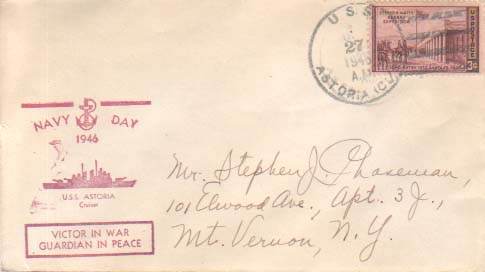 U.S.S.
27
1946
A.M.
ASTORIA (CL
U.S. POSTAGE
3¢
NAVY DAY
1946
U.S.S. ASTORIA
Cruiser
VICTOR IN WAR
GUARDIAN IN PEACE
Mr. Stephen J. Chaseman,
101 Elwood Ave., Apt. 3 J.,
Mt. Vernon, N.Y.